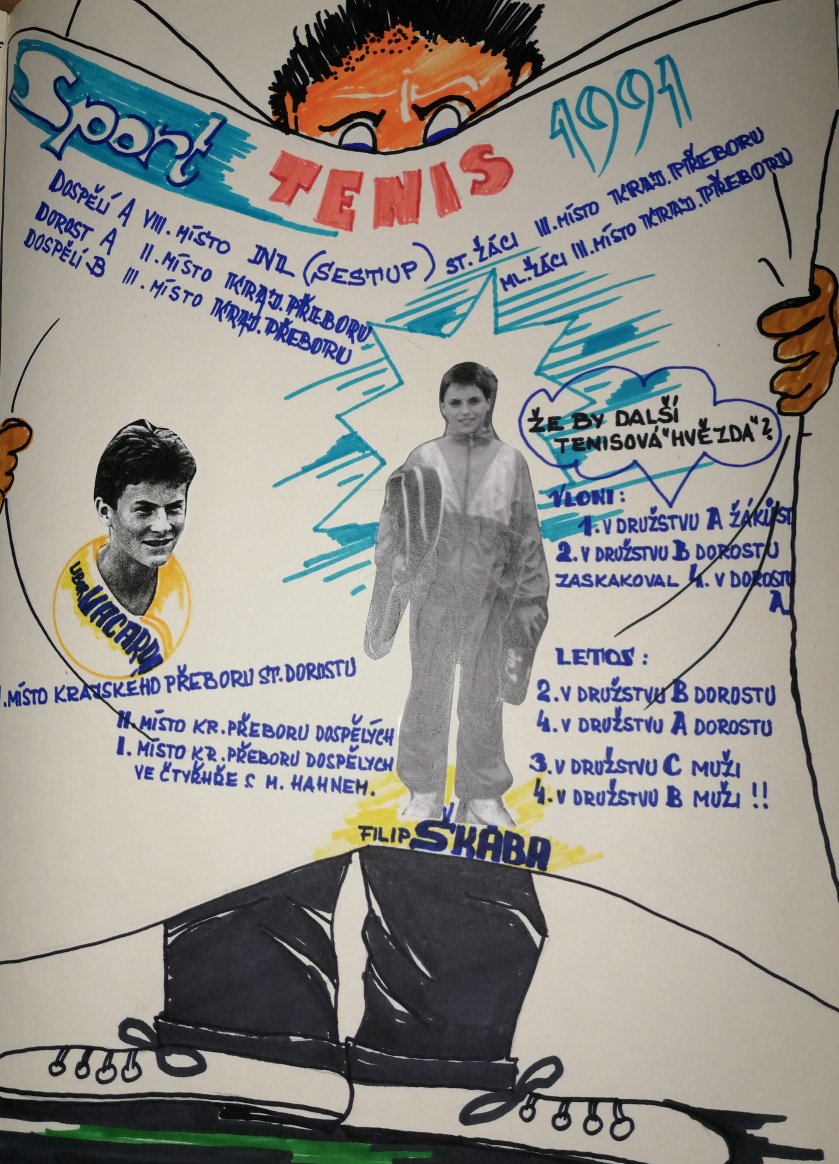 Sport
TENIS
1991
DOSPĚLÍ A VIII. MÍSTO INL (SESTUP)
DOROST A II. MÍSTO KRAJ. PŘEBORU
DOSPĚLÍ B III. MÍSTO KRAJ. PŘEBORU
ST. ŽÁCI III. MÍSTO KRAJ. PŘEBORU
ML. ŽÁCI III. MÍSTO KRAJ. PŘEBORU
ŽE BY DALŠÍ
TENISOVÁ "HVĚZDA"?
VLONI:
1. V DRUŽSTVU A
2. V DRUŽSTVU B DOROSTU
ZASKAKOVAL 4. V DOROSTU
A.
LETOS:
2. V DRUŽSTVU B DOROSTU
4. V DRUŽSTVU A DOROSTU
3. V DRUŽSTVU C MUŽI
4. V DRUŽSTVU B MUŽI !!
MÍSTO KRAJSKÉHO PŘEBORU ST. DOROSTU
II. MÍSTO KR. PŘEBORU DOSPĚLÝCH
I. MÍSTO KR. PŘEBORU DOSPĚLÝCH
VE ČTYŘHŘE S M. HAHNEM.
FILIP ŠKÁBA